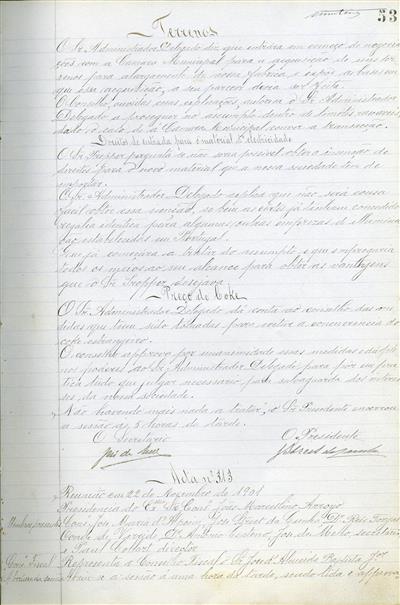 53
Terrenos
O Sr. Administrador Delegado diz que entrára em começo de negocia
ções com a Camara Municipal para a acquisição de uns ter
renos para alargamento da nossa fabrica, e expõe as bases em
que essa acquisição, a seu parecer devia ser feita.
O Conselho, ouvidas estas explicações, autorisa o Sr. Administrador
Delegado a proseguir no assumpto dentro de limites rasoaveis,
dado o caso de a Camara Municipal convir a transacção.
Direitos de entrada para o material de electricidade
O Sr. Tropper pergunta se não seria possivel obter a isenção de
direitos para o novo material que a nossa sociedade tem de
importar.
O Sr. Administrador Delegado explica que não será cousa
facil obter essa isenção, se bem as côrtes já tenham concedido
regalia identica para algumas outras emprezas de illumina
ção estabelecidas em Portugal.
Que já começára a tratar do assumpto e que empregaria
todos os meios ao seu alcance para obter as vantagens
que o Sr. Tropper desejava.
Preço do Coke
O Sr. Administrador Delegado dá conta ao conselho das me
didas que tem sido tomadas para evitar a concorrencia do
coke estrangeiro.
O conselho approva por unanimidade essas medidas e dá ple
nos poderes ao Sr. Administrador Delegado para pôr em pra
tica tudo que julgar necessario para salvaguarda dos interes
ses da nossa sociedade.
Não havendo mais nada a tratar, o Sr. Presidente encerrou
a sessão ás 5 horas da tarde.
O Secretario
O Presidente
Acta nº 313
Reunião em 22 de Novembro de 1901
Presidencia do Exmo Sr. Consº João Marcellino Arroyo
Membros presentes
Conde de
secretario
e Paul director
Consº Fiscal Representa o Conselho Fiscal o Sr. José d'Almeida Baptista
Abertura da sessão Abriu-se a sessão a uma hora da tarde, sendo lida e approva